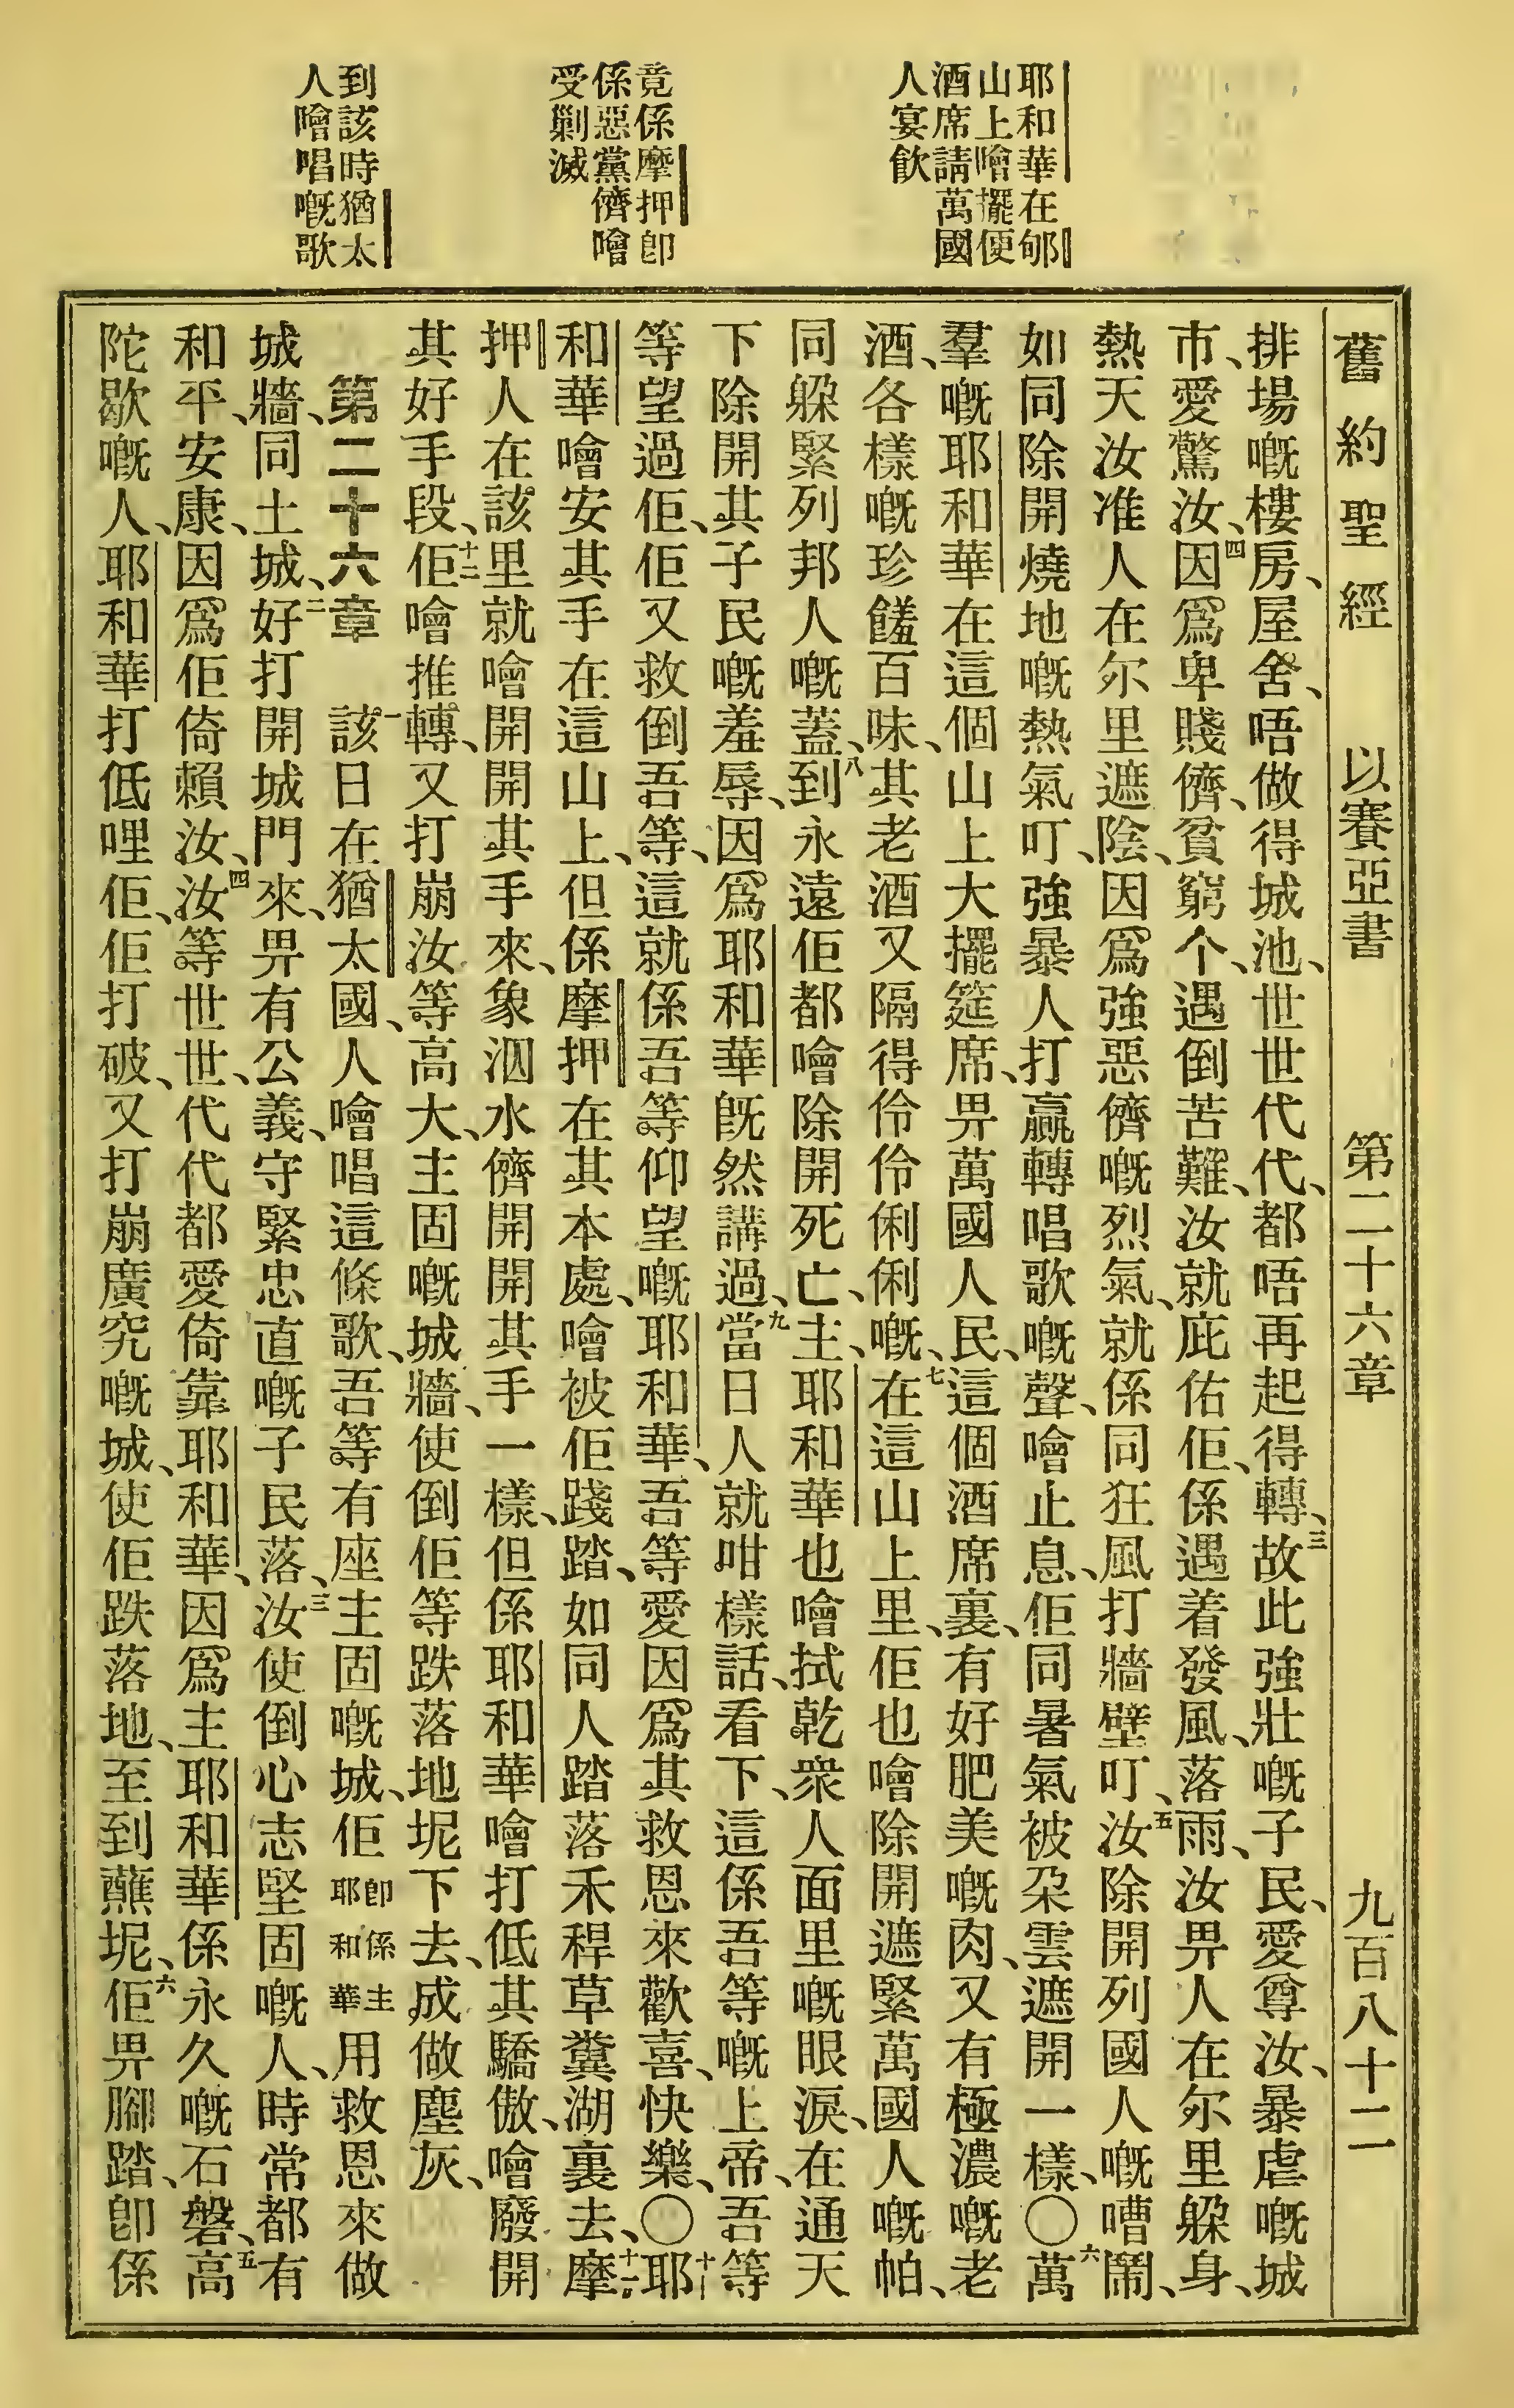 耶和華在郇
山上噲擺便
酒席請萬國
人宴飲
竟係摩押卽
係惡黨儕噲
受剿滅
到該時猶太
人噲唱嘅歌
舊約聖經 以賽亞書 第二十六章 九百八十二
排場嘅樓房、屋舍、唔做得城池、世世代代、都唔再起得轉、三故此強壯嘅子民、愛尊汝、暴虐嘅城
市、愛驚汝、四因爲卑賤儕、貧窮个、遇倒苦難、汝就庇佑佢、係遇着發風、落雨、汝畀人在尔里躲身、
熱天汝准人在尔里遮陰、因爲強惡儕嘅烈氣、就係同狂風打牆壁叮、五汝除開列國人嘅嘈鬧、
如同除開燒地嘅熱氣叮、強暴人打贏轉唱歌嘅聲、噲止息、佢同暑氣被朶雲遮開一樣、〇六萬
羣嘅耶和華在這個山上大擺筵席、畀萬國人民、這個酒席裏、有好肥美嘅肉、又有極濃嘅老
酒、各樣嘅珍饈百味、其老酒又隔得伶伶俐俐嘅、七在這山上里、佢也噲除開遮緊萬國人嘅帕、
同躲緊列邦人嘅蓋、八到永遠佢都噲除開死亡、主、耶和華也噲拭乾衆人面里嘅眼淚、在通天
下除開其子民嘅羞辱、因爲耶和華旣然講過、九當日人就咁樣話、看下、這係吾等嘅上帝、吾等
等望過佢、佢又救倒吾等、這就係吾等仰望嘅耶和華、吾等愛因爲其救恩來歡喜、快樂、〇十耶
和華噲安其手在這山上、但係摩押在其本處、噲被佢踐踏、如同人踏落禾稈草糞湖裏去、十一摩
押人在該里就噲開開其手來、象泅水儕開開其手一樣、但係耶和華噲打低其驕傲、噲廢開
其好手段、十二佢噲推轉、又打崩汝等高大、主固嘅城牆、使倒佢等跌落地坭下去、成做塵灰、
第二十六章 一該日在猶太國、人噲唱這條歌、吾等有座主固嘅城、佢卽係主耶和華用救恩來做
城牆、同土城、二好打開城門來、畀有公義、守緊忠直嘅子民落、三汝使倒心志堅固嘅人、時常都有
和平、安康、因爲佢倚賴汝、四汝等世世、代代都愛倚靠耶和華、因爲主耶和華係永久嘅石磐、五高
陀歇嘅人、耶和華打低哩佢、佢打破、又打崩廣究嘅城、使佢跌落地、至到蘸坭、六佢畀腳踏、卽係